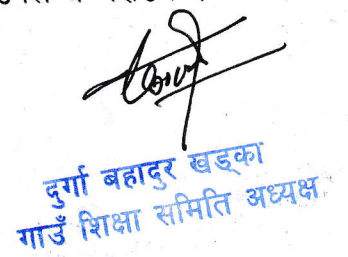 दुर्गा बहादुर खड्का
गाउँ शिक्षा समिति अध्यक्ष